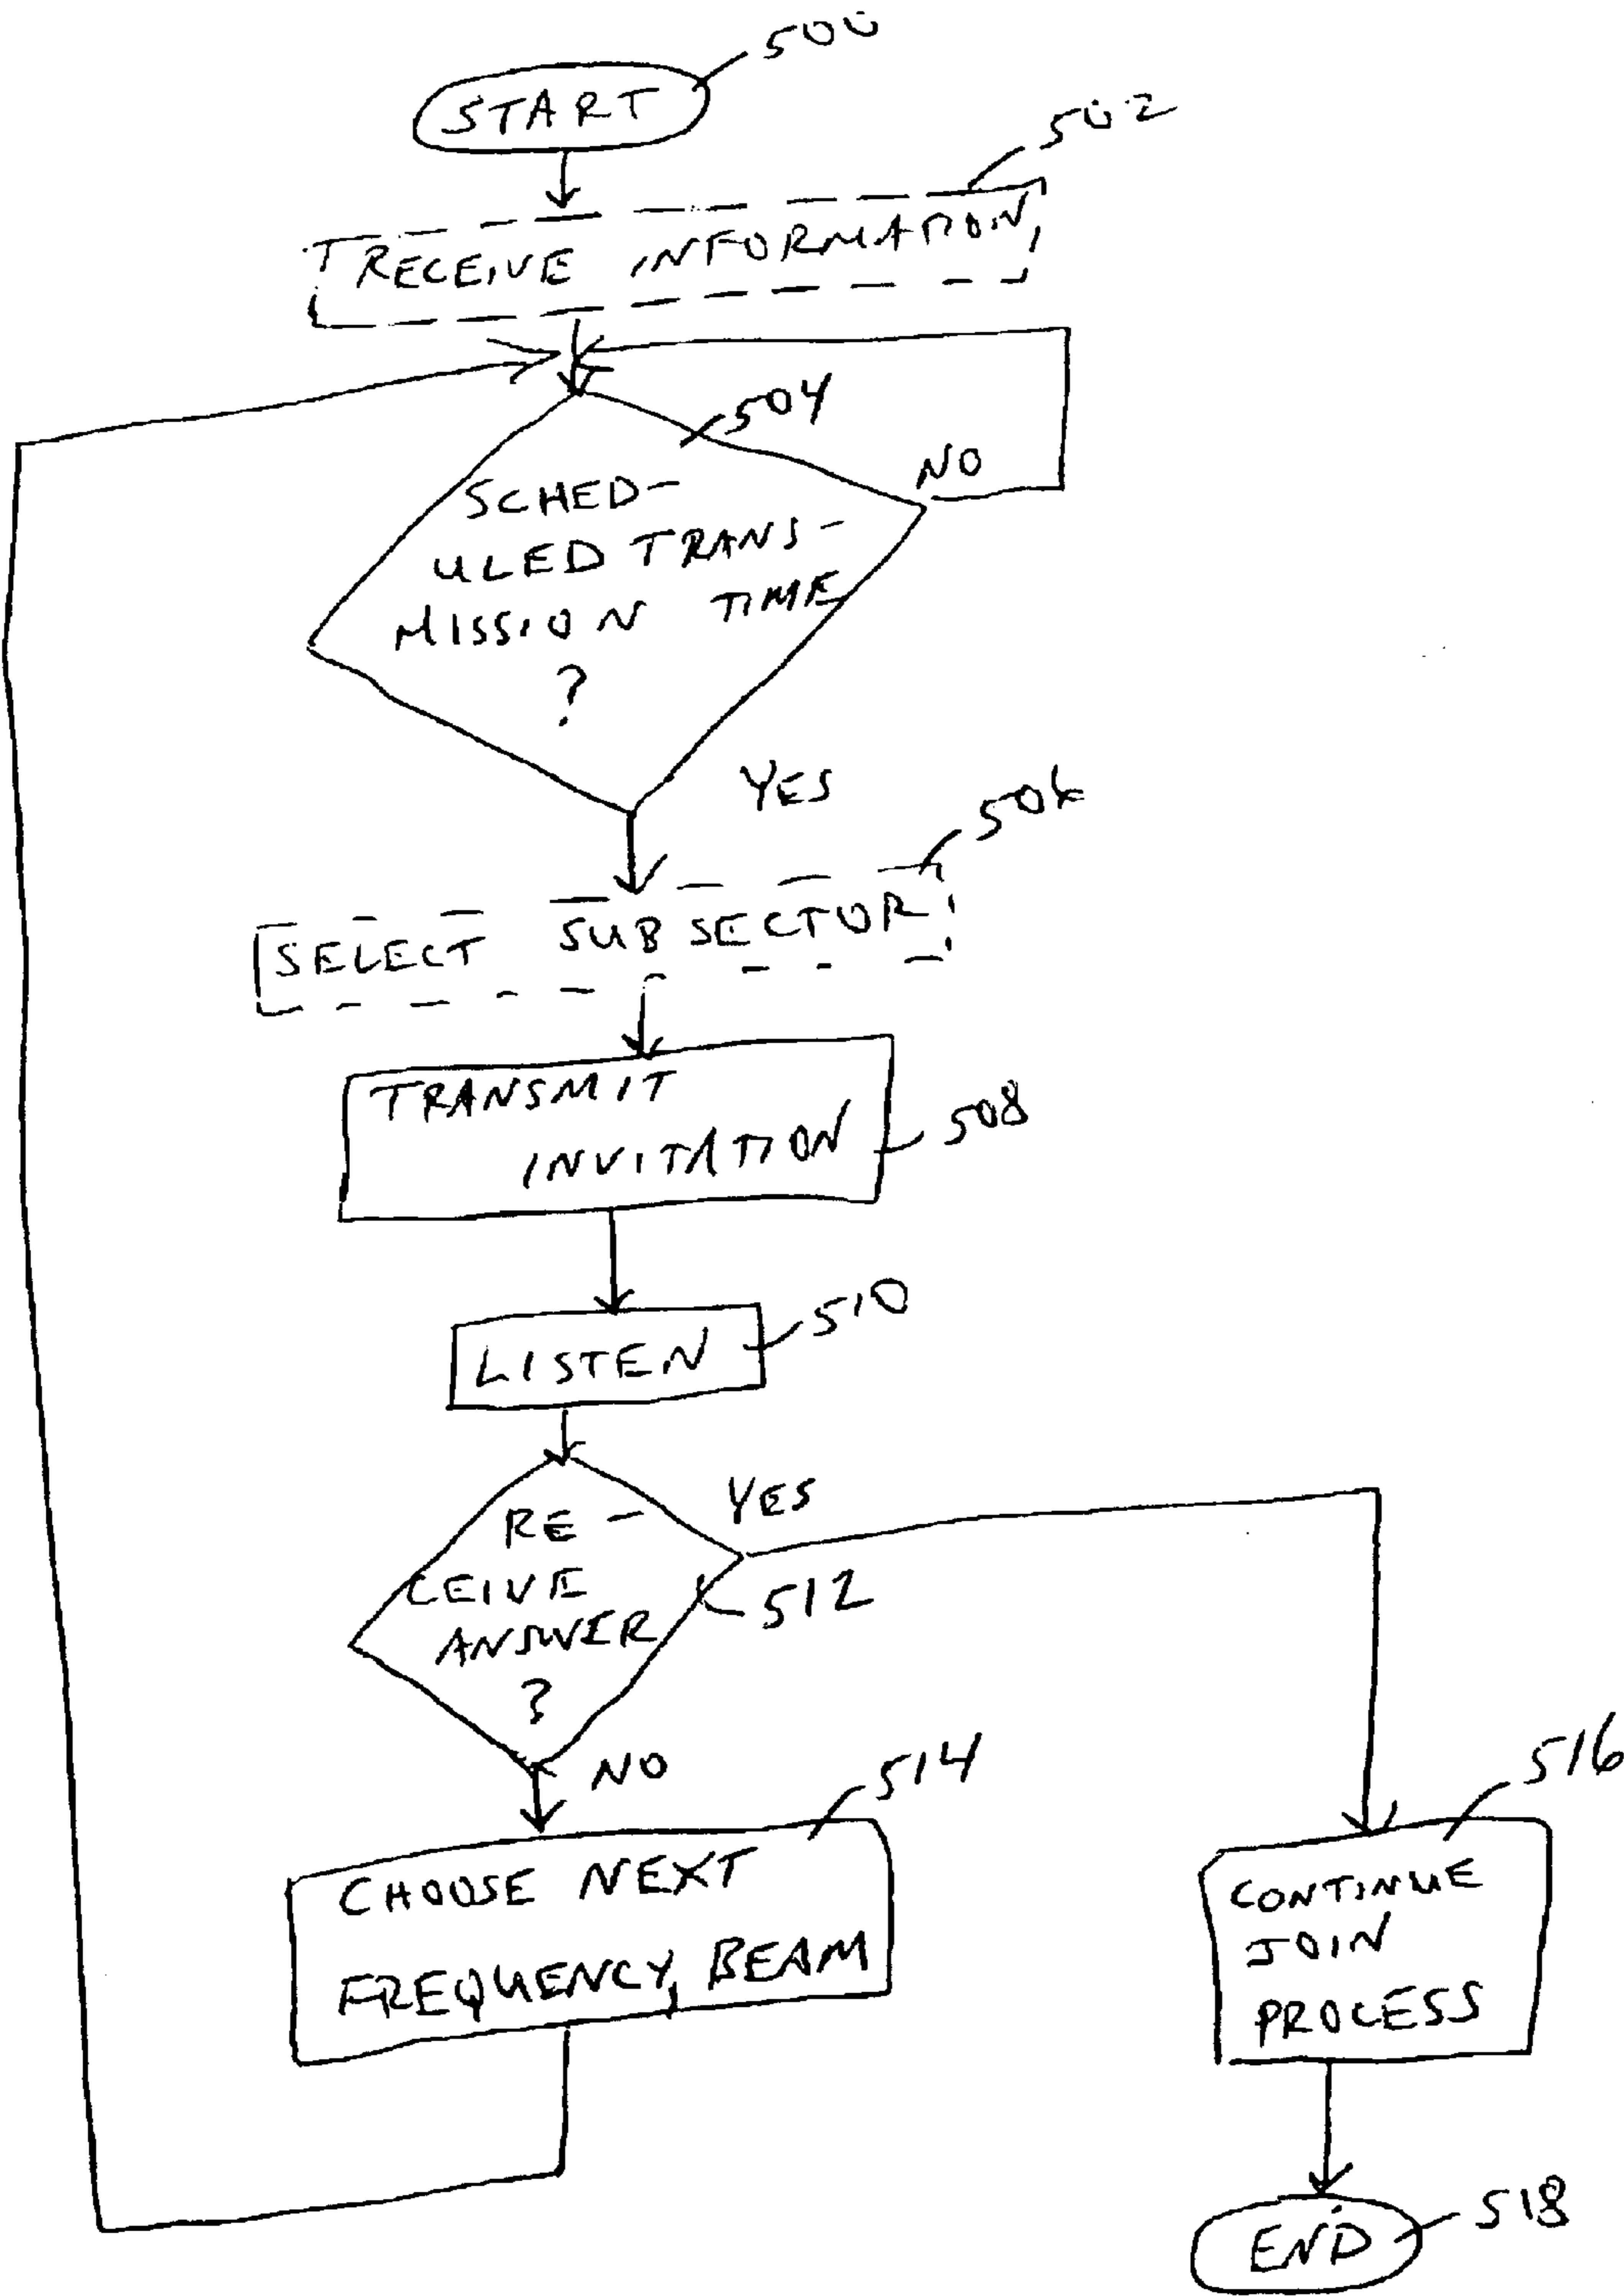 500
START
502
RECEIVE INFORMATION
504
NO
SCHED-
ULED TRANS-
MISSION TIME
?
YES
506
SELECT SUBSECTOR
TRANSMIT
INVITATION
508
510
LISTEN
YES
RE-
CEIVE
512
ANSWER
?
NO
514
516
CHOOSE NEXT
FREQUENCY, BEAM
CONTINUE
JOIN
PROCESS
518
END